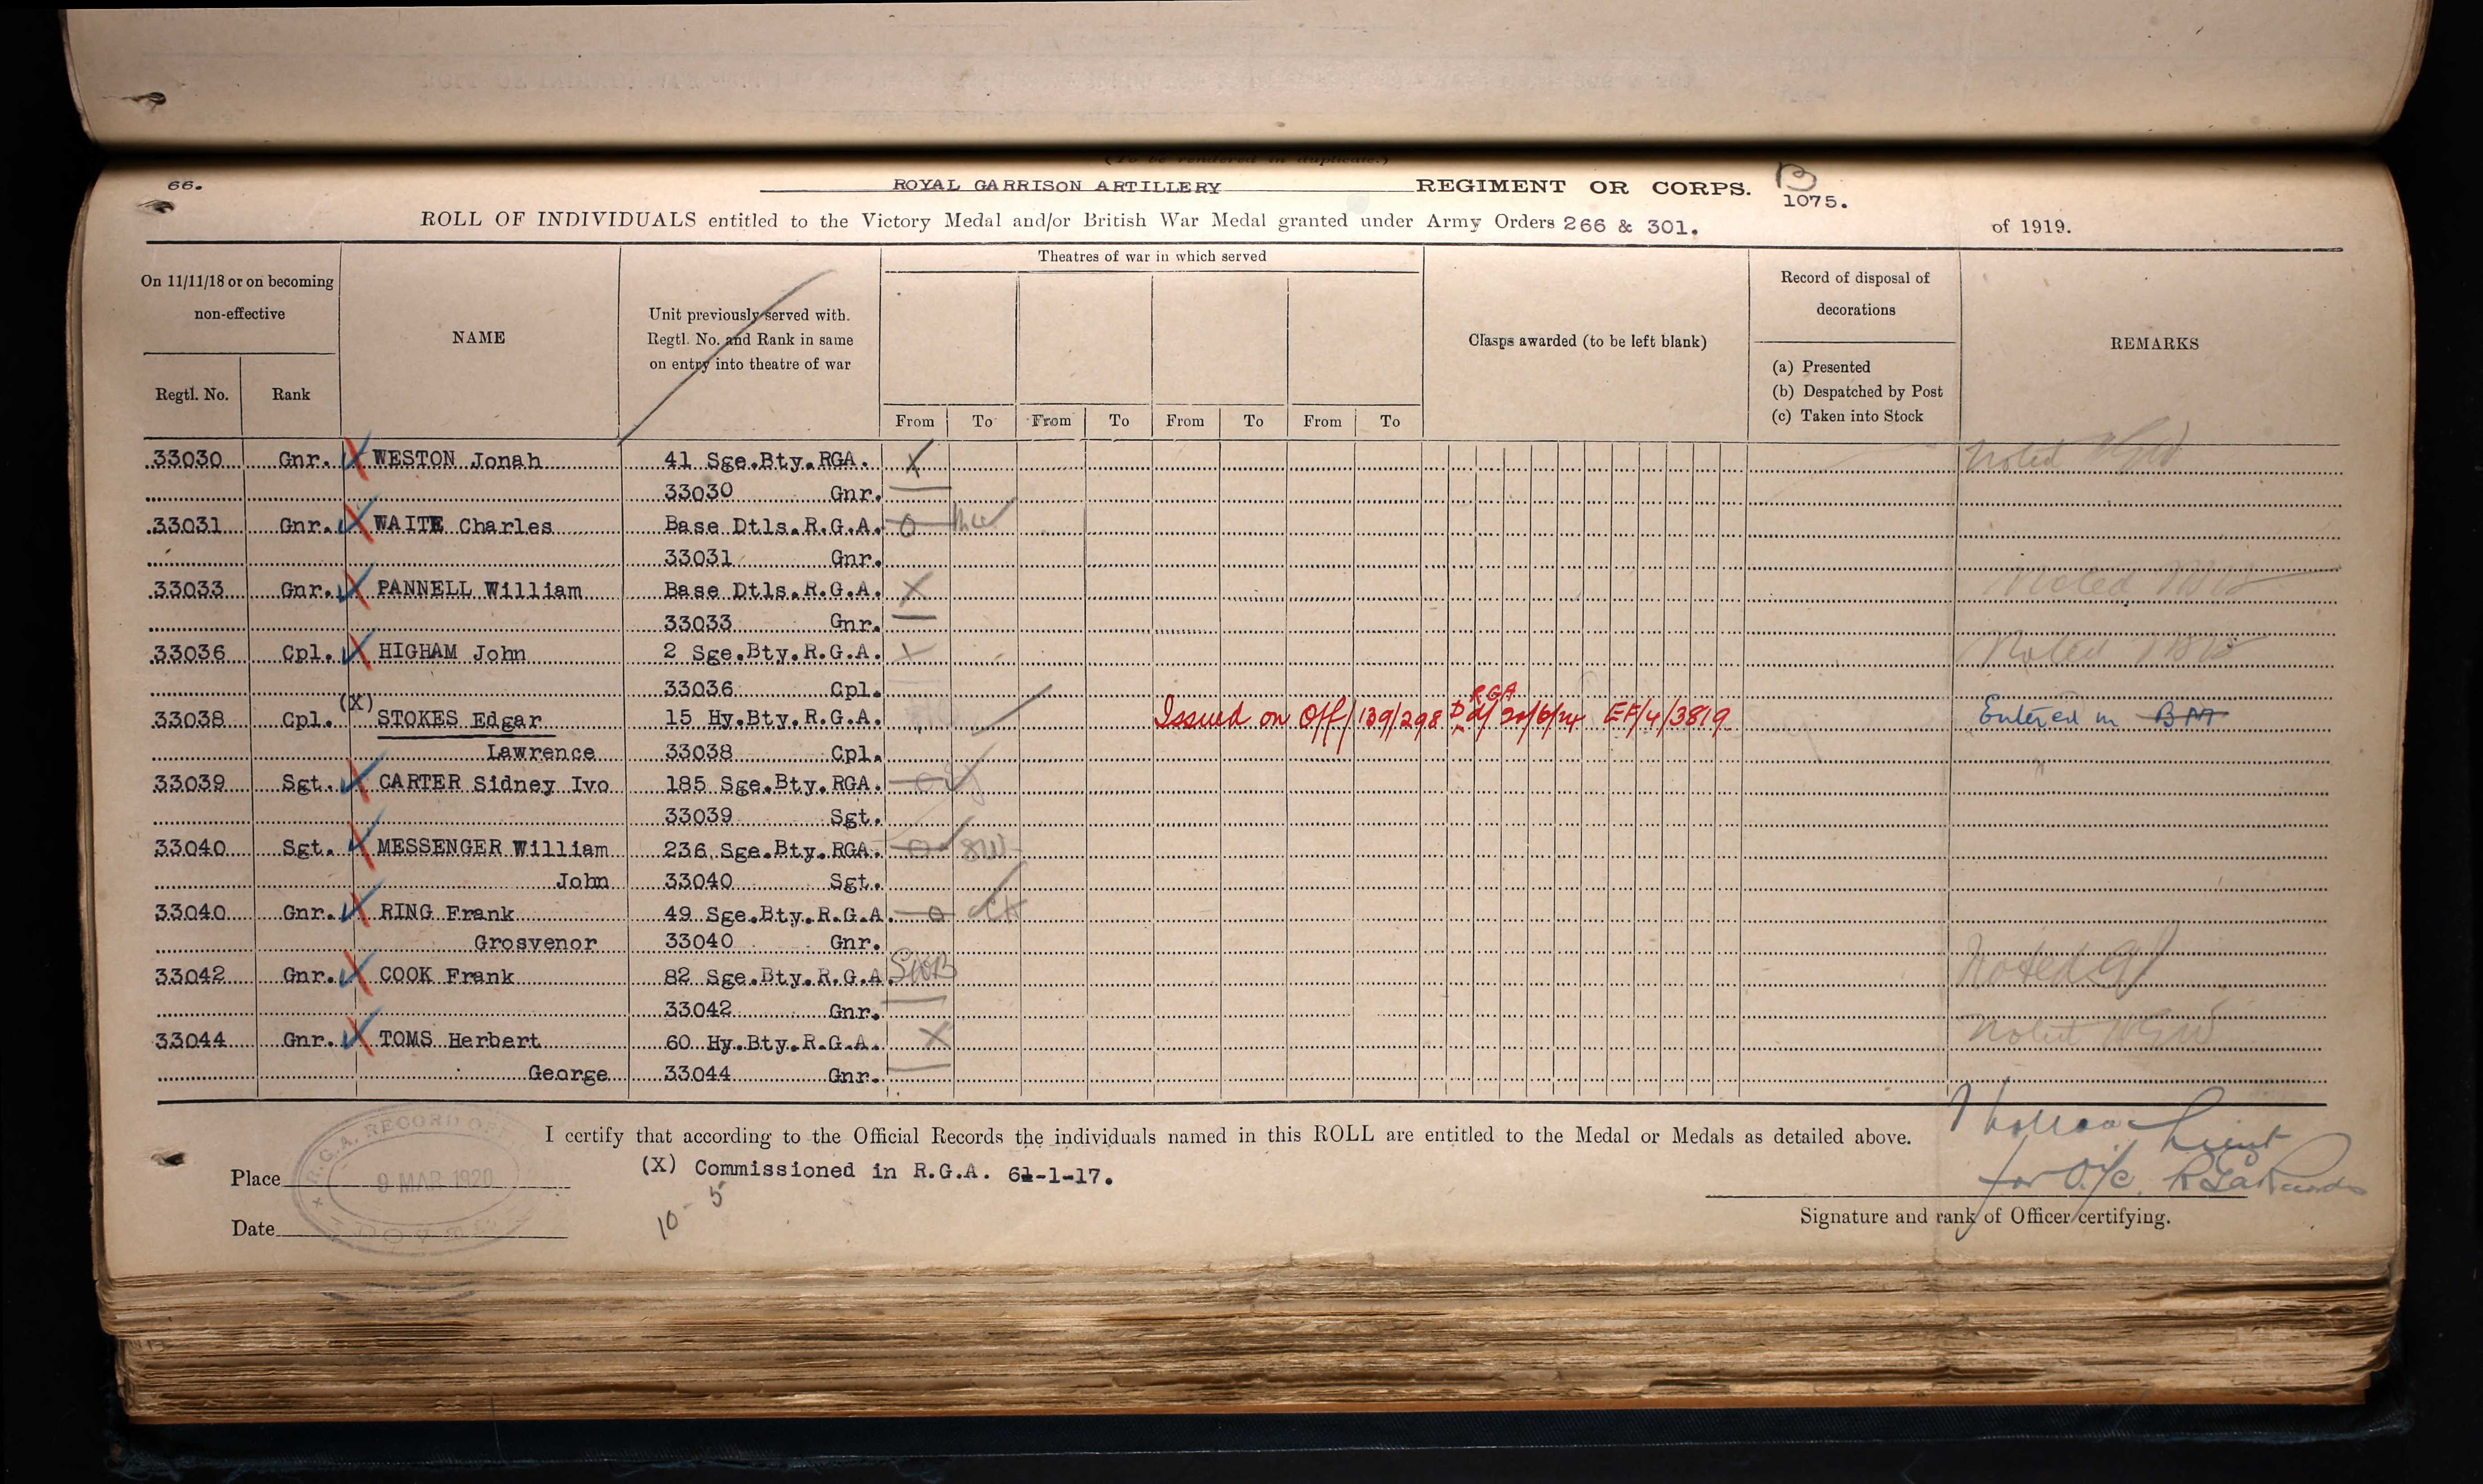 (To be rendered in duplicate.)
66.
ROYAL GARRISON ARTILLERY REGIMENT OR CORPS.
B
1075.
ROLL OF INDIVIDUALS entitled to the Victory Medal and/or British War Medal granted under Army Orders 266 & 301. of 1919.
On 11/11/18 or on becoming non-effective
Regtl. No.
Rank
NAME
Unit previously served with.
Regtl. No. and Rank in same
on entry into theatre of war
Theatres of war in which served
From To From To From To From To
Clasps awarded (to be left blank)
Record of disposal of decorations
(a) Presented
(b) Despatched by Post
(c) Taken into Stock
REMARKS
33030 Gnr. WESTON Jonah 41 Sge.Bty.RGA. X Noted
33030 Gnr.
33031 Gnr. WAITE Charles Base Dtls.R.G.A.
33031 Gnr.
33033 Gnr. PANNELL William Base Dtls.R.G.A. X Noted
33033 Gnr.
33036 Cpl. HIGHAM John 2 Sge.Bty.R.G.A. X Noted
33036 Cpl.
33038 Cpl. (X) STOKES Edgar 15 Hy.Bty.R.G.A. Issued on Off/139/298 RGA EF/4/3819 Entered in
Lawrence 33038 Cpl.
33039 Sgt. CARTER Sidney Ivo 185 Sge.Bty.RGA.
33039 Sgt.
33040 Sgt. MESSENGER William 236 Sge.Bty.RGA.
John 33040 Sgt.
33040 Gnr. RING Frank 49 Sge.Bty.R.G.A.
Grosvenor 33040 Gnr.
33042 Gnr. COOK Frank 82 Sge.Bty.R.G.A. SWB Noted
33042 Gnr.
33044 Gnr. TOMS Herbert 60 Hy.Bty.R.G.A. X Noted
George 33044 Gnr.
I certify that according to the Official Records the individuals named in this ROLL are entitled to the Medal or Medals as detailed above.
(X) Commissioned in R.G.A. 61-1-17.
10 - 5
Place
R.G.A. RECORD
9 MAR 1920
Date
Lieut
for O.i/c. RGA Records
Signature and rank of Officer certifying.